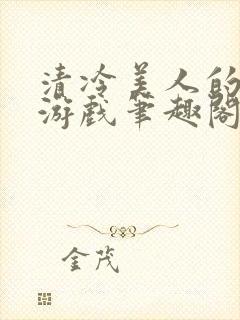 清冷美人的
游戏笔趣阁
金茂